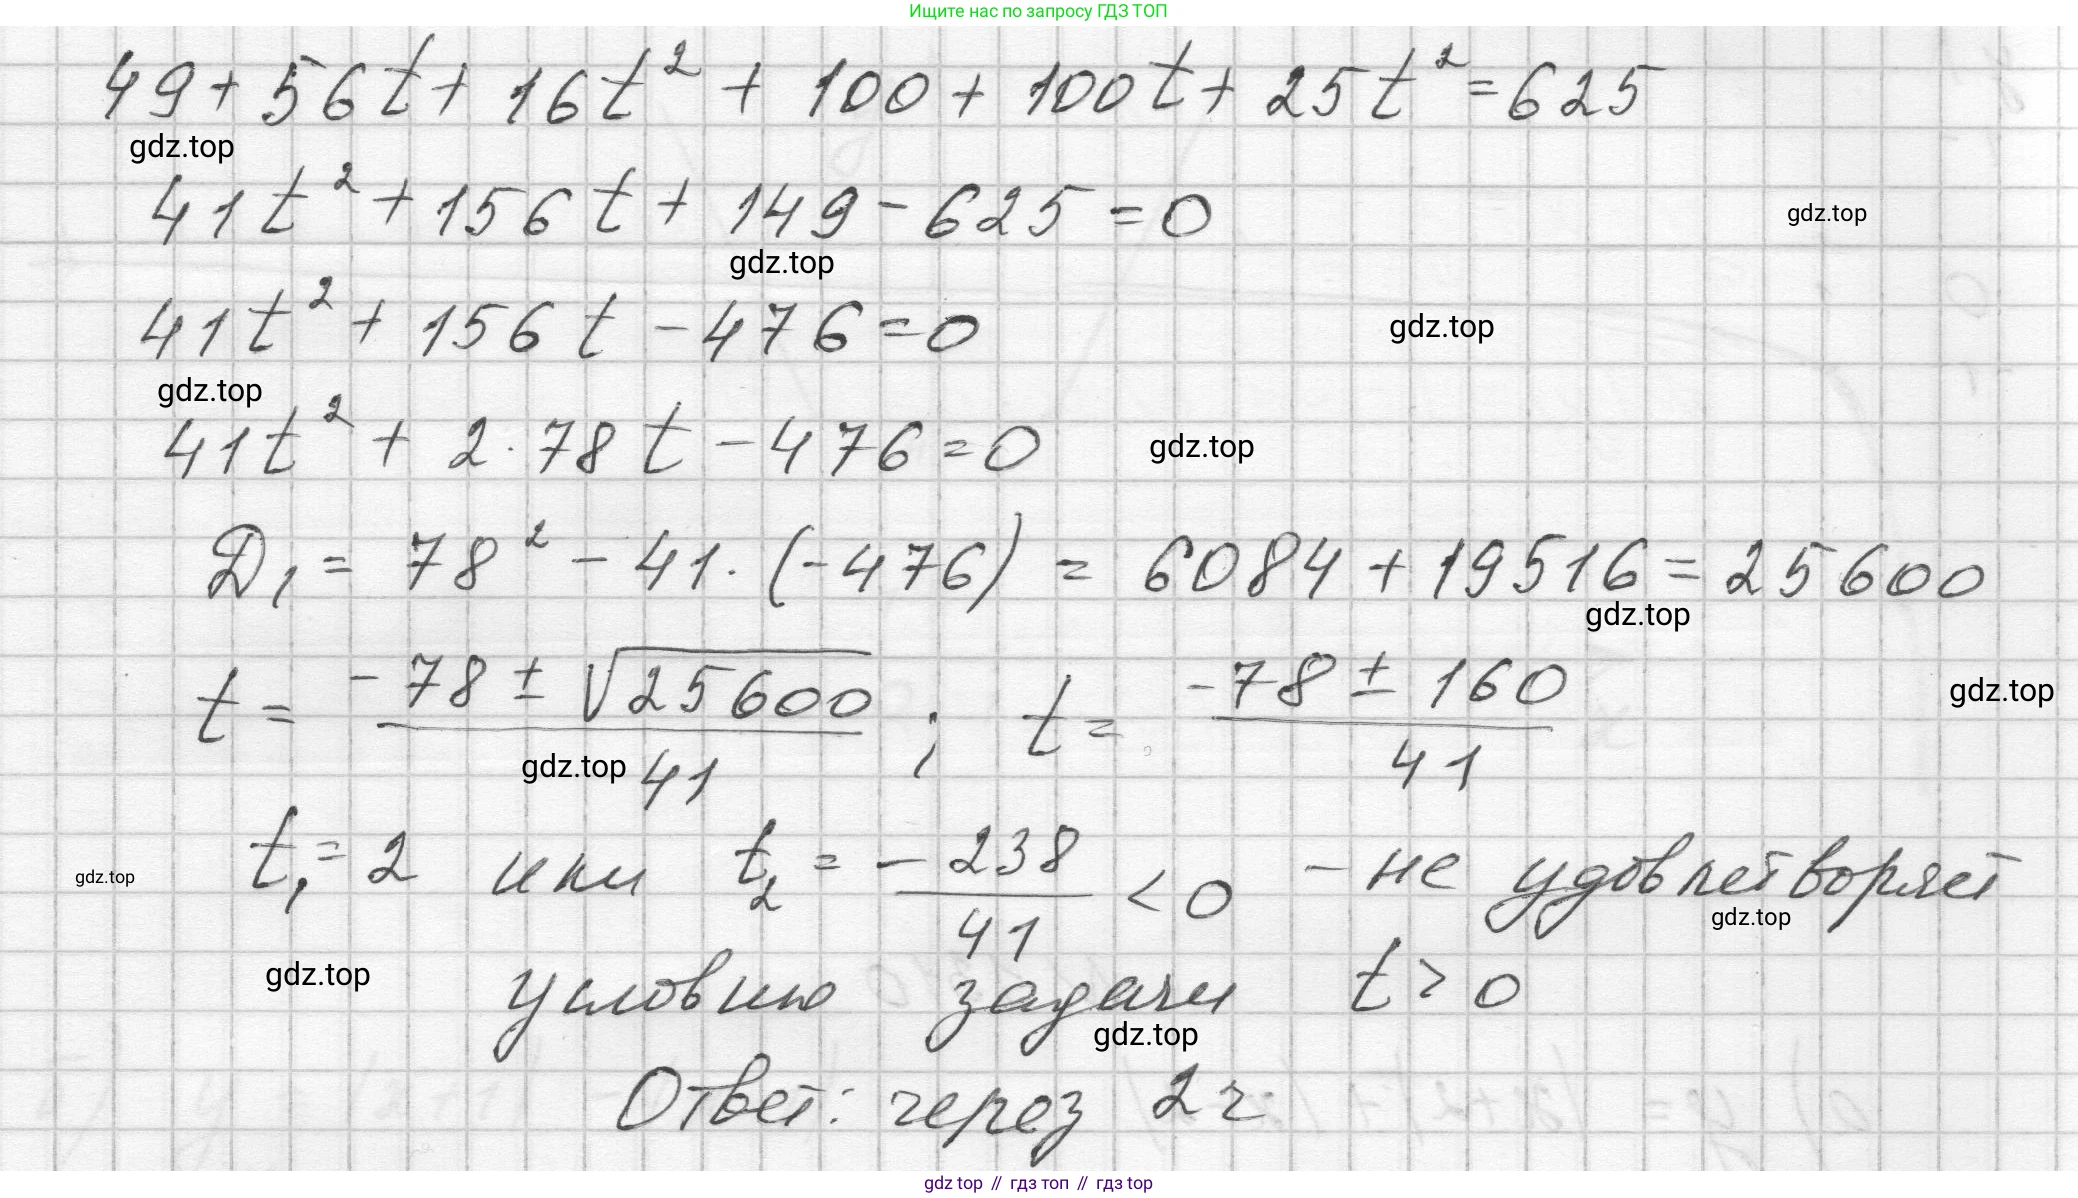 Ищите нас по запросу ГДЗ ТОП
49 + 56t + 16t² + 100 + 100t + 25t² = 625
gdz.top
41t² + 156t + 149 - 625 = 0
gdz.top
gdz.top
41t² + 156t - 476 = 0
gdz.top
gdz.top
41t² + 2·78t - 476 = 0
gdz.top
D₁ = 78² - 41·(-476) = 6084 + 19516 = 25600
gdz.top
t = (-78 ± √25600)/41 ; t = (-78 ± 160)/41
gdz.top
gdz.top
t₁ = 2 или t₂ = -238/41 < 0 - не удовлетворяет
gdz.top
gdz.top
условию задачи t > 0
gdz.top
gdz.top
Ответ: через 2 ч.
gdz top // гдз топ // гдз top